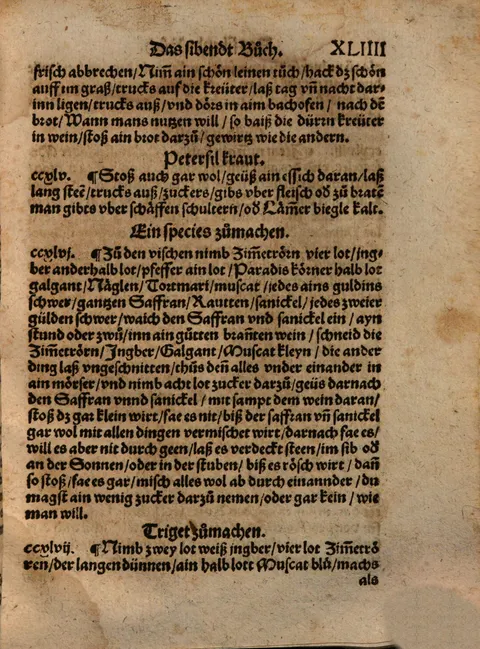 Das sibendt Bůch. XLIIII
frisch abbrechen/Nim̃ ain schön leinen tůch/hack dz schön
auff im graß/trucks auf die kreüter/laß tag vñ nacht dar-
inn ligen/trucks auß/vnd dörs in aim bachofen/ nach dẽ
brot/Wann mans nutzen will/so baiß die dürin kreüter
in wein/stoß ain brot darzů/gewirtz wie die andern.
Petersil kraut.
ccxlv. ¶Stoß auch gar wol/geüß ain essich daran/laß
lang steẽ/trucks auß/zuckers/gibs vber fleisch oď zů bratẽ
man gibts vber schäffen schultern/oď Läm̃er biegle kalt.
Ein species zůmachen.
ccxlvj. ¶Zů den vischen nimb Zim̃etrörn vier lot/jng-
ber anderhalb lot/pfeffer ain lot/Paradis körner halb lot
galgant/Näglen/Tortmari/muscat/jedes ains guldins
schwer/gantzen Saffran/Rautten/sanickel/jedes zweier
gülden schwer/waich den Saffran vnd sanickel ein/ayn
stund oder zwů/inn ain gůtten brañten wein/schneid die
Zim̃etrörn/Jngber/Galgant/Muscat kleyn/die ander
ding laß vngeschnitten/thůs deñ alles vnder einander in
ain mörser/vnd nimb acht lot zucker darzů/geüs darnach
den Saffran vnnd sanickel/mit sampt dem wein daran/
stoß dz gar klein wirt/sae es nit/biß der saffran vñ sanickel
gar wol mit allen dingen vermischet wirt/darnach sae es/
will es aber nit durch geen/laß es verdeckt steen/im sib oď
an der Sonnen/oder in der stuben/biß es rösch wirt/dañ
so stoß/sae es gar/misch alles wol ab durch einannder/du
magst ain wenig zucker darzů nemen/oder gar kein/wie
man will.
Triget zůmachen.
ccxlvij. ¶Nimb zwey lot weiß jngber/vier lot Zim̃etrö
ren/der langen dünnen/ain halb lott Muscat blů/machs
als